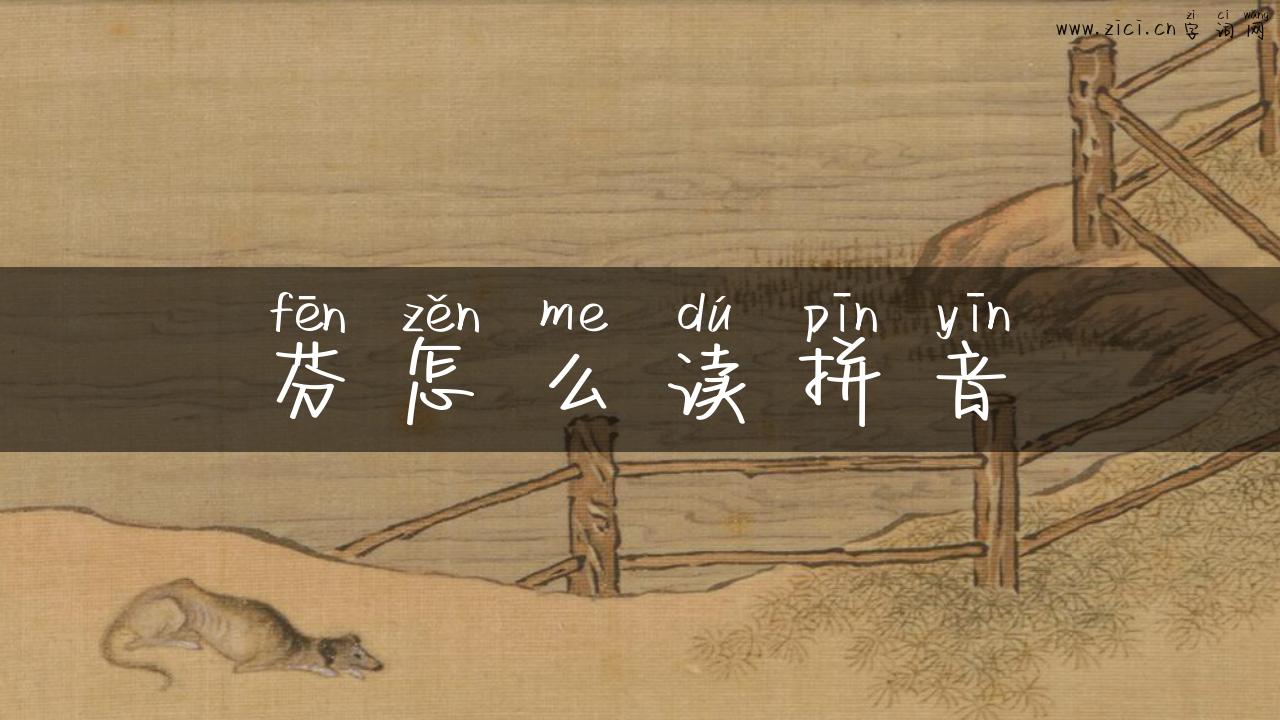 zì cí wǎng
www.zici.cn 字词网
fēn zěn me dú pīn yīn
芬怎么读拼音